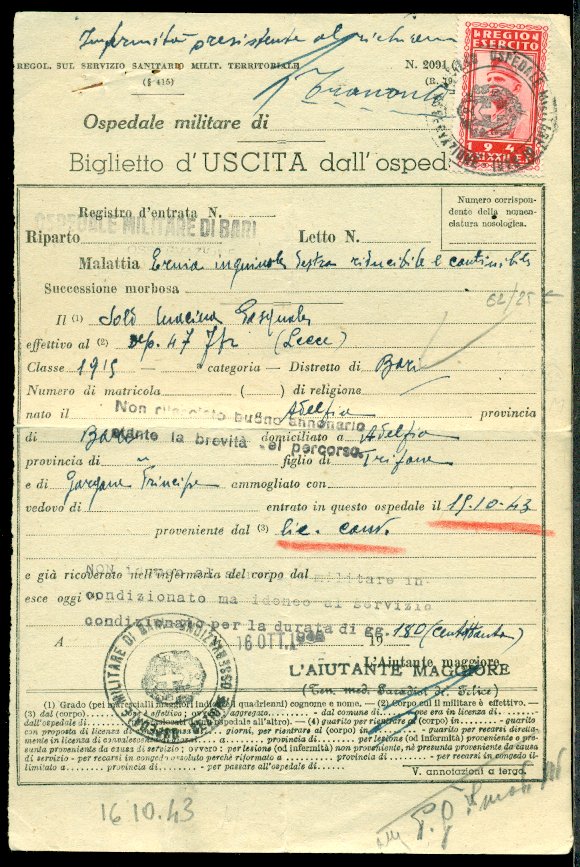 Infermità presistente al richiamo
REGOL. SUL SERVIZIO SANITARIO MILIT. TERRITORIALE N. 2091
(§ 415)
REGIO
ESERCITO
194
Ospedale militare di
Biglietto d'USCITA dall'osped
Numero corrispon-
dente della nomen-
clatura nosologica.
Registro d'entrata N.
OSPEDALE MILITARE DI BARI
Riparto Letto N.
Malattia Ernia inguinale destra riducibile e contenibile
Successione morbosa
62/25
Il (1) Sold. Macina Pasquale
effettivo al (2) Dep. 47 Ftr (Lecce)
Classe 1915 categoria - Distretto di Bari
Numero di matricola ( ) di religione
Non rilasciato buono annonario
nato il Adelfia provincia
di Bari domiciliato a Adelfia
stante la brevità del percorso
provincia di figlio di Trifone
e di ammogliato con
vedovo di entrato in questo ospedale il 15.10-43
proveniente dal (3) lic. conv.
e già ricoverato nell'infermeria del corpo dal
NON idoneo al militare in-
esce oggi
condizionato ma idoneo al servizio
condizionato per la durata di gg. 180 (centottanta)
A 16 OTT. 19
OSPEDALE MILITARE DI BARI
L'Aiutante maggiore
L'AIUTANTE MAGGIORE
(1) Grado (pei marescialli maggiori indicare i quadrienni) cognome e nome. (2) Corpo cui il militare è effettivo.
(3) dal (corpo) effettivo; ovvero: aggregato. - dal comune di ove era in licenza di
dall'ospedale di (se traslocato da altro ospedale all'altro). (4) guarito per rientrare al (corpo) in - guarito
con proposta di licenza di giorni, per rientrare al (corpo) - guarito per recarsi diretta-
mente in licenza di convalescenza - per lesione (od infermità) proveniente e pre-
sunta proveniente da causa di servizio; ovvero: per lesione (od infermità) non proveniente, nè presunta proveniente da causa
di servizio - per recarsi in congedo assoluto perchè riformato a provincia di - per recarsi in congedo il-
limitato a provincia di - per passare all'ospedale di
V. annotazioni a tergo.
16 10.43